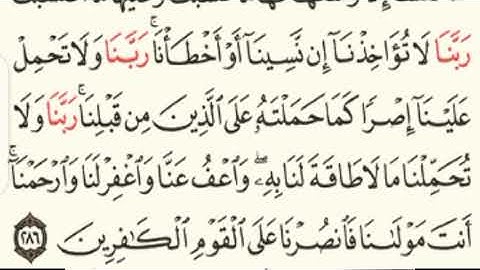 رَبَّنَا لَا تُؤَاخِذْنَآ إِن نَّسِينَآ أَوْ أَخْطَأْنَا ۚ رَبَّنَا وَلَا تَحْمِلْ
عَلَيْنَآ إِصْرًا كَمَا حَمَلْتَهُۥ عَلَى ٱلَّذِينَ مِن قَبْلِنَا ۚ رَبَّنَا وَلَا
تُحَمِّلْنَا مَا لَا طَاقَةَ لَنَا بِهِۦ ۖ وَٱعْفُ عَنَّا وَٱغْفِرْ لَنَا وَٱرْحَمْنَآ ۚ
أَنتَ مَوْلَىٰنَا فَٱنصُرْنَا عَلَى ٱلْقَوْمِ ٱلْكَٰفِرِينَ ٢٨٦